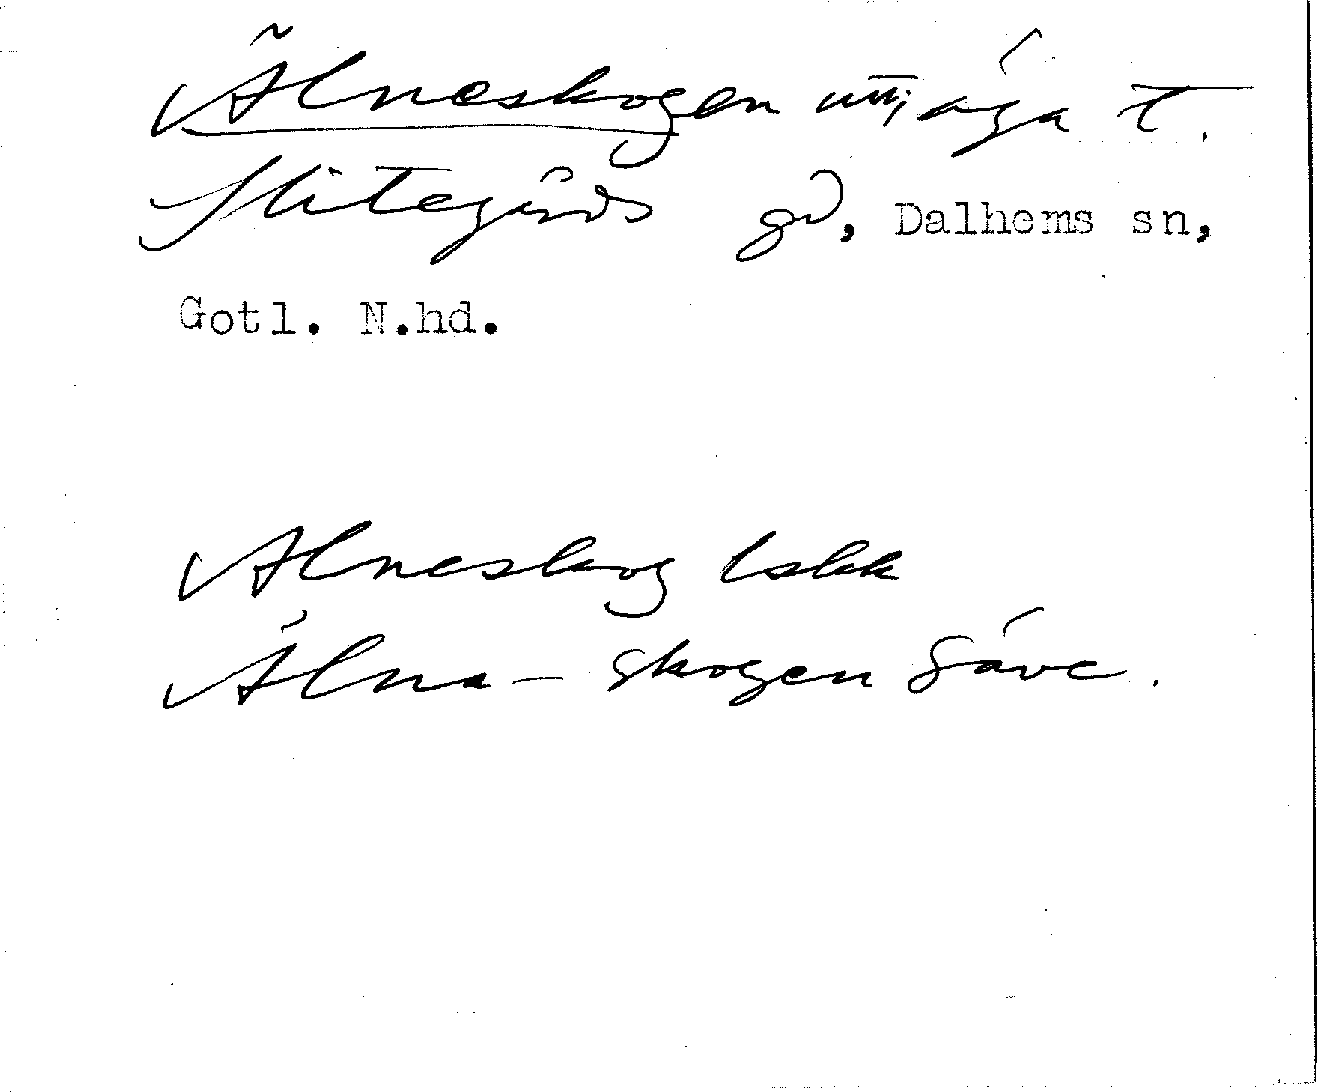 Älneskogen utj. äga t.
Slitegårds gd, Dalhems sn,
Gotl. N.hd.
Alneskog lskk
Älna-skogen Säve.